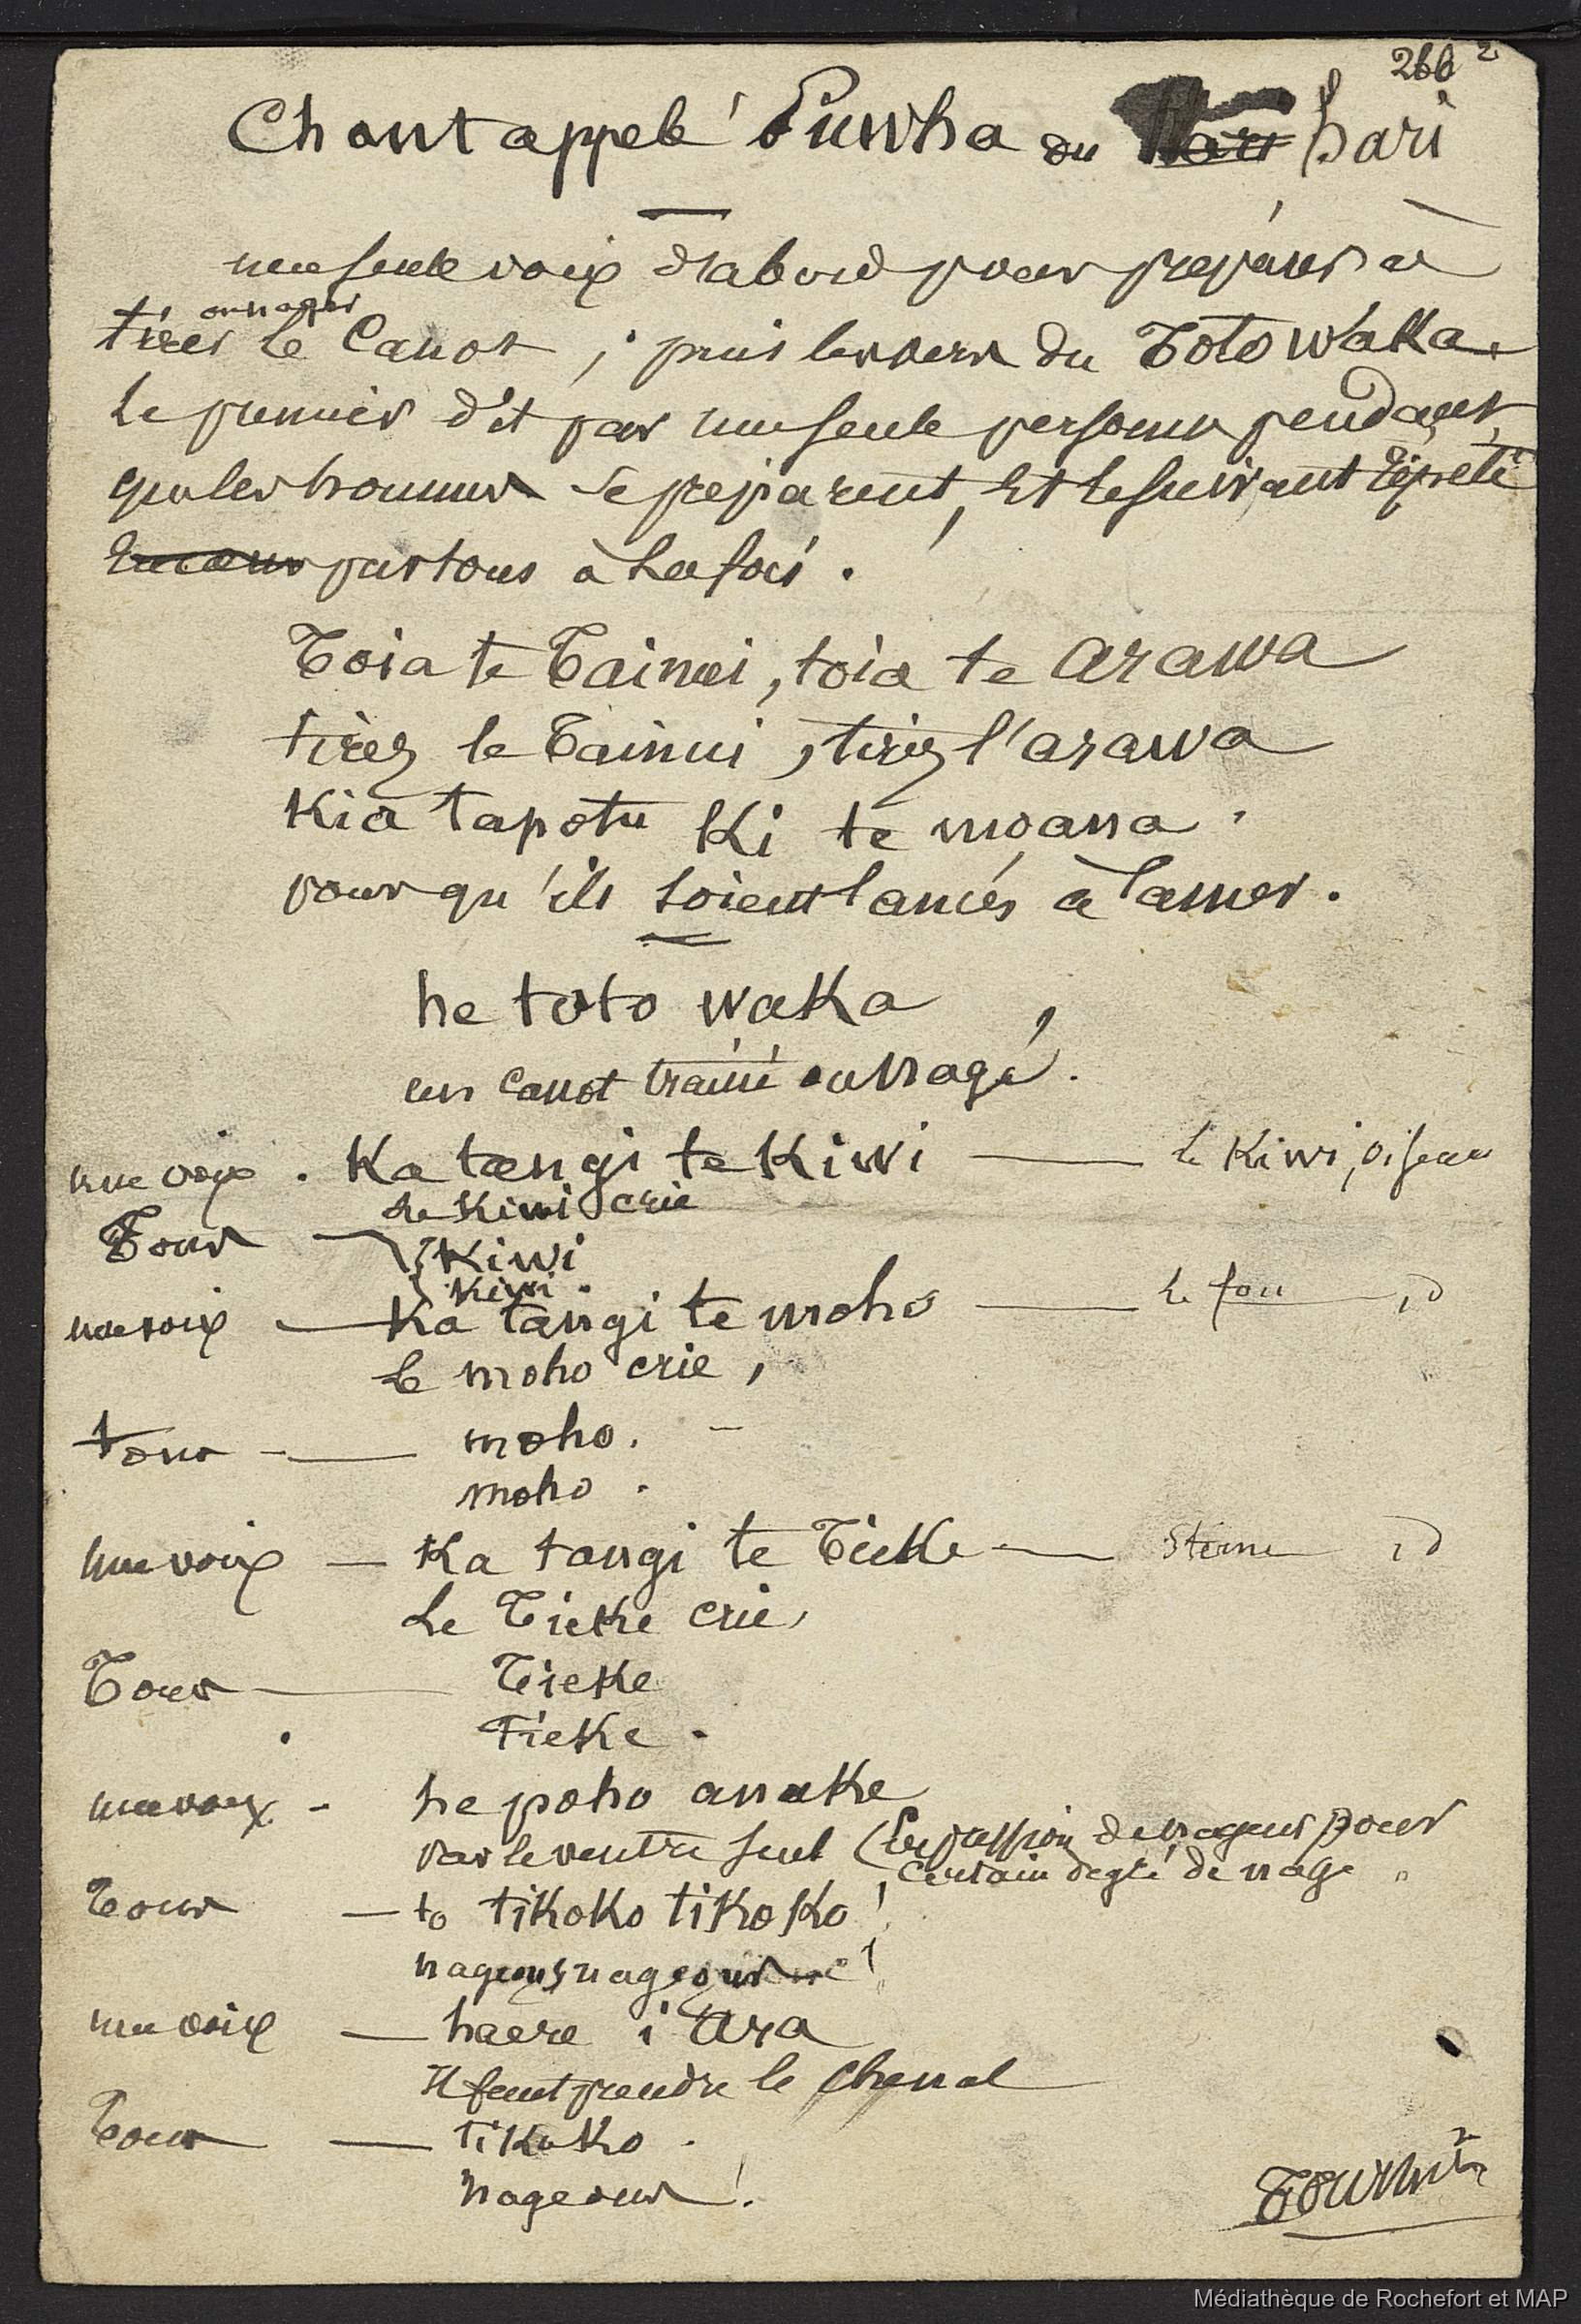 266 2
Chant appelé Puwha ou hari
une seule voix d'abord pour preparer à
ou nager
tirer le Canot ; puis les vers du Toto Waka.
Le premier dit par une seule personne pendant
que les hommes se preparent, et le suivant répété
par tous à la fois.
Toia te Tainui, toia te arawa
tirez le Tainui, tirez l'arawa
Kia tapotu Ki te moana.
pour qu'ils soient lancés à la mer.
he toto waka
un Canot trainé ou nagé.
une voix. Ka tangi te Kiwi — le Kiwi, oiseau
le Kiwi crie
Tous — Kiwi
Kiwi.
une voix — Ka tangi te moho — le fou — id
le moho crie,
tous — moho.
moho.
une voix — Ka tangi te Tieke — Sterne id
Le Tieke crie,
Tous — Tieke
Tieke.
une voix - he poho anake
par le ventre seul (Expression de nageur pour
certain degré de nage "
Tous — to tikoko tikoko!
nageons, nageons!
une voix — haere i Ara
Il faut prendre le chenal
Tous — tikoko.
nageons!
Tournez
Médiathèque de Rochefort et MAP